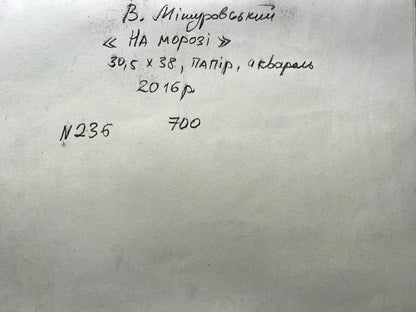 В. Мішуровський
« НА МОРОЗІ »
30,5 x 38, ПАПІР, акварель
2016р
N236 700